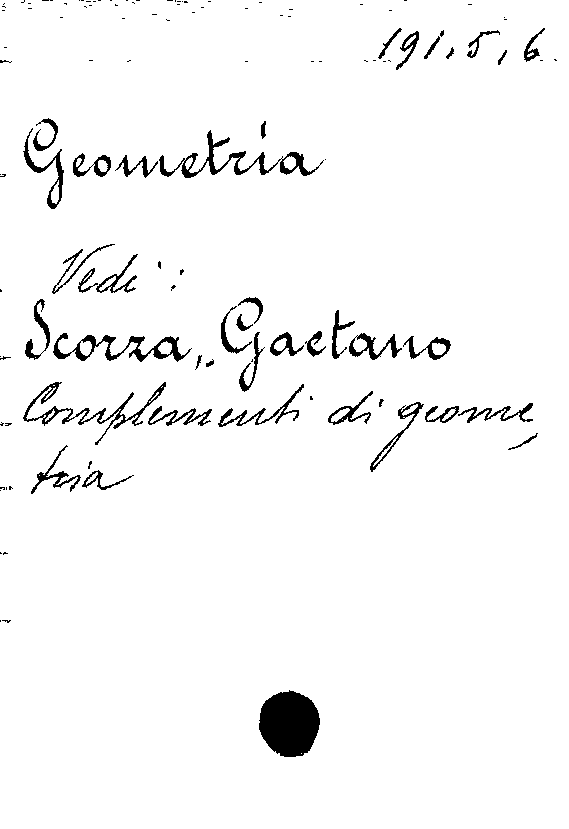 191.5.6
Geometria
Vedi:
Scorza, Gaetano
Complementi di geome-
tria